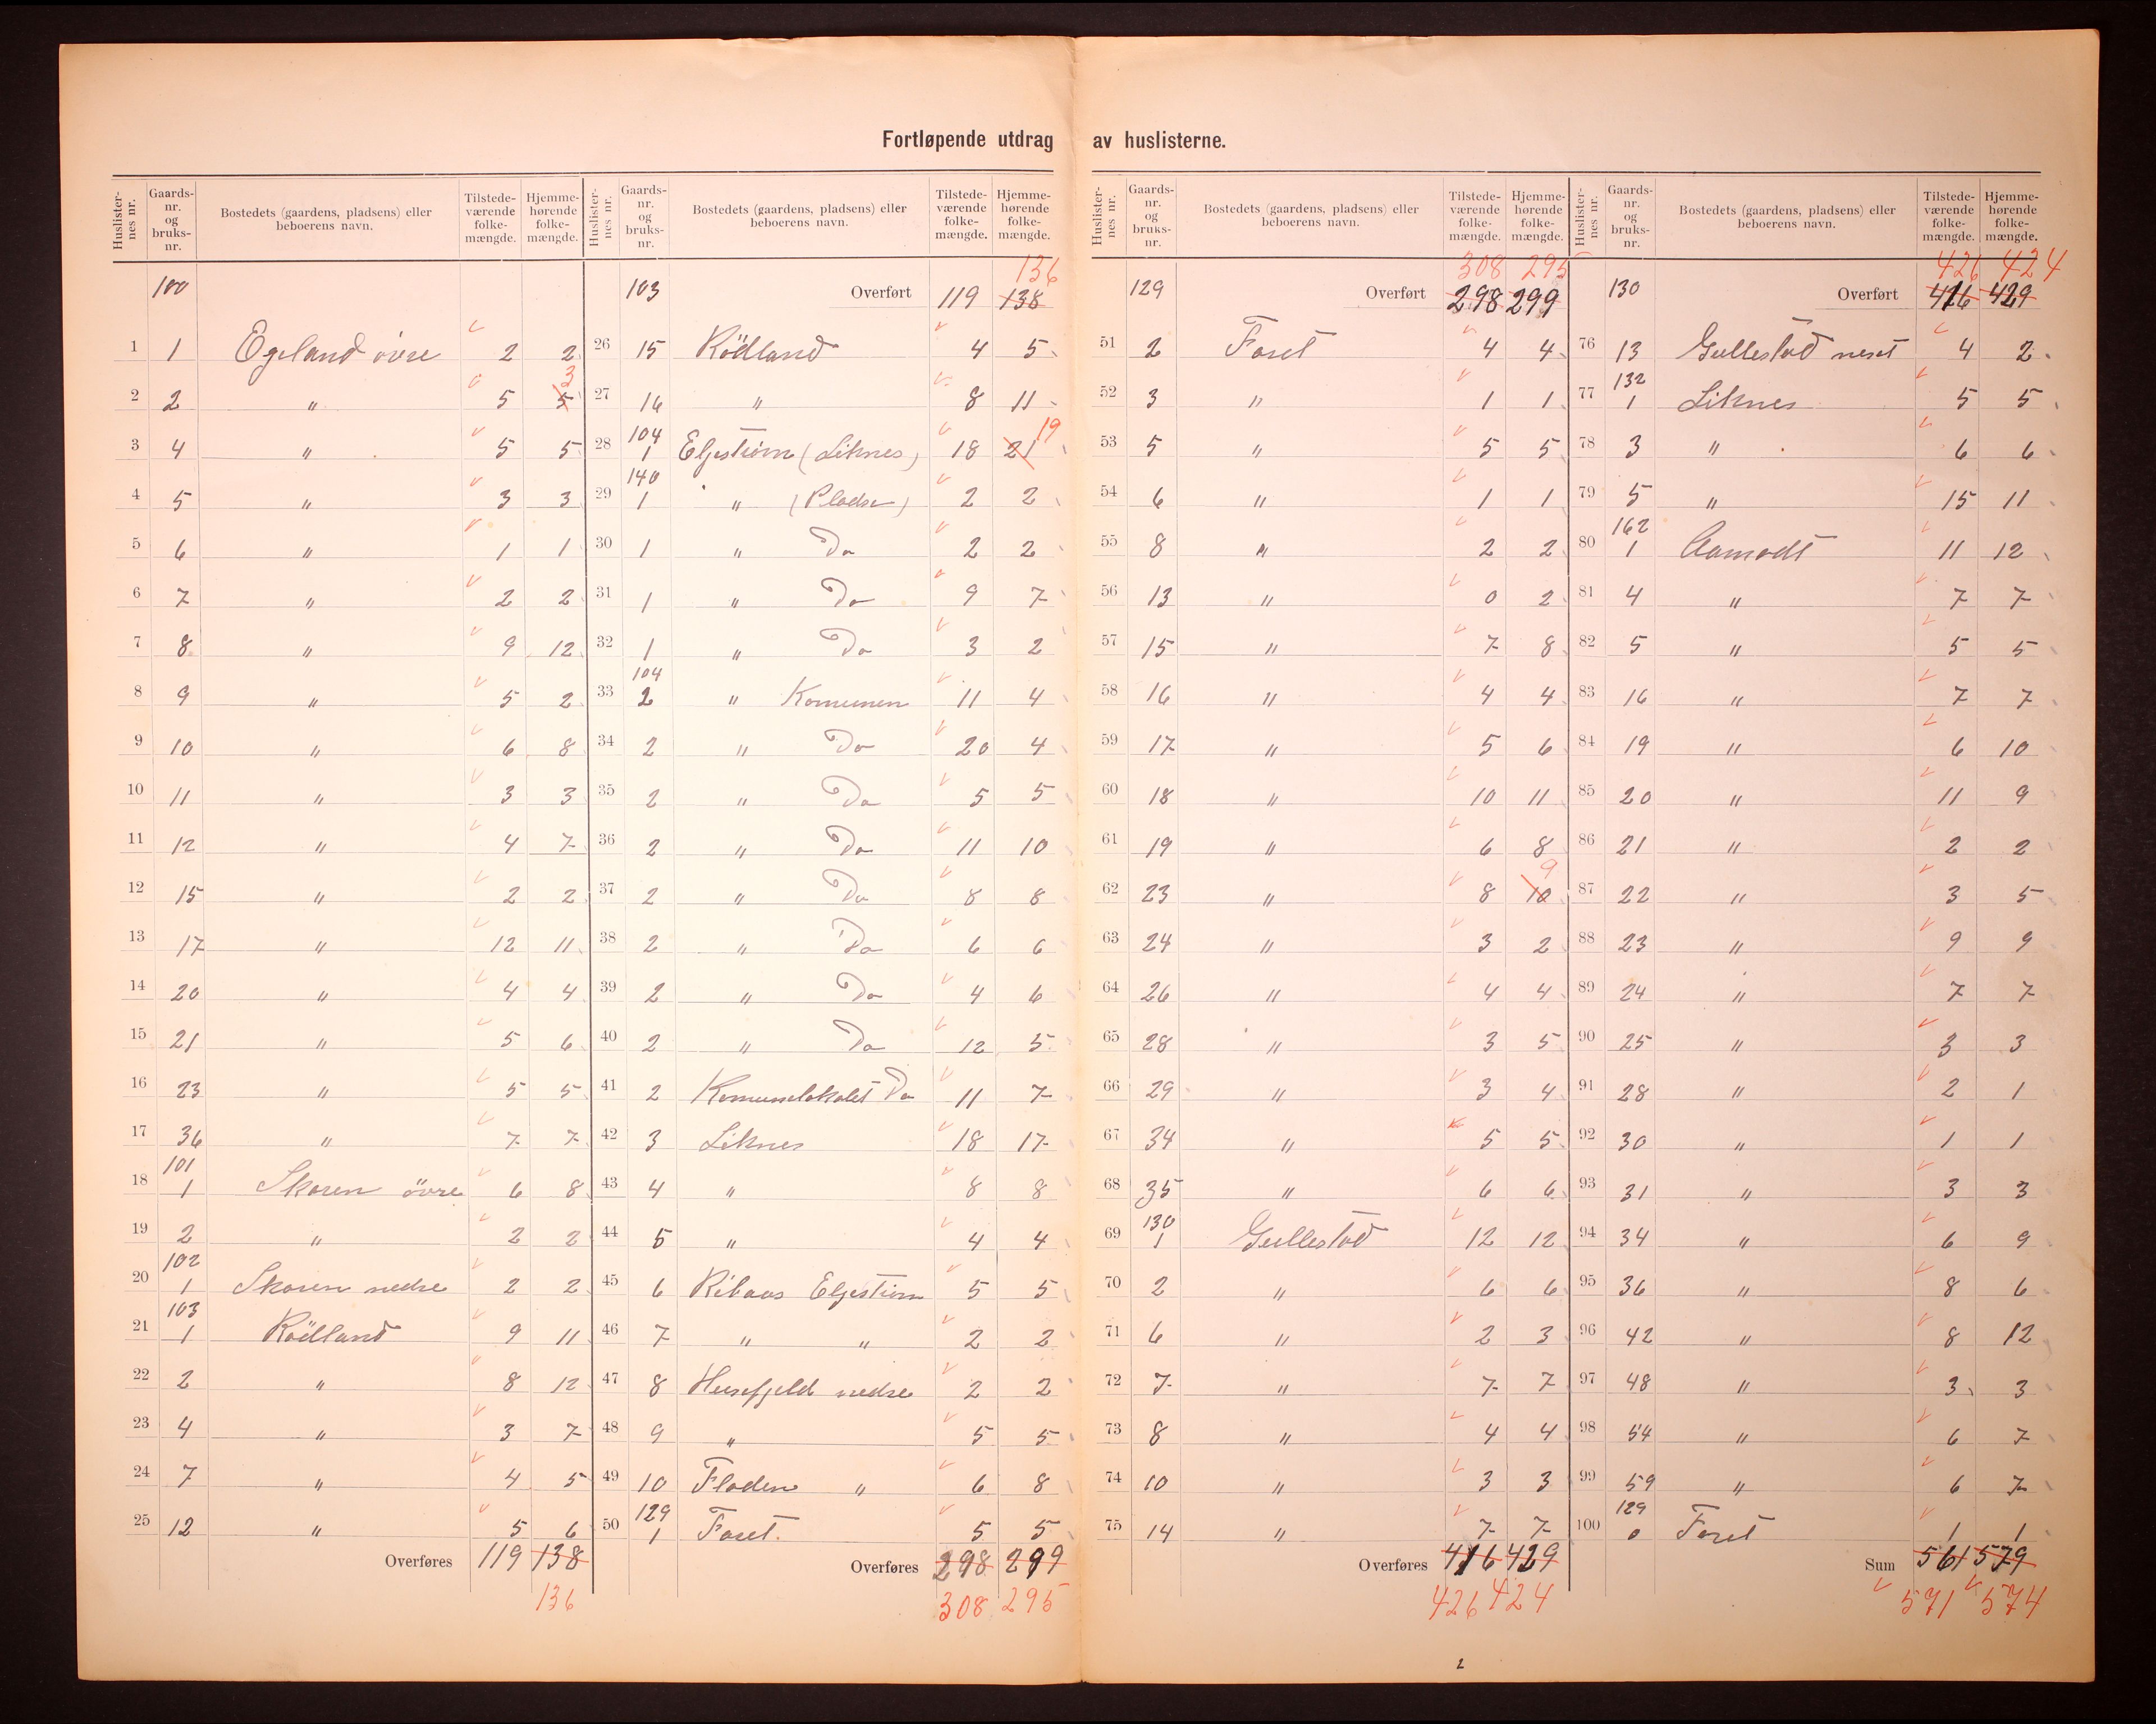 Fortløpende utdrag av huslisterne.
Huslister-nes nr. Gaards-nr. og bruks-nr. Bostedets (gaardens, pladsens) eller beboerens navn. Tilstede-værende folke-mængde. Hjemme-hørende folke-mængde.
100
1 1 Egeland övre 2 2
2 2 " 5 5 3
3 4 " 5 5
4 5 " 3 3
5 6 " 1 1
6 7 " 2 2
7 8 " 9 12
8 9 " 5 2
9 10 " 6 8
10 11 " 3 3
11 12 " 4 7
12 15 " 2 2
13 17 " 12 11
14 20 " 4 4
15 21 " 5 6
16 23 " 5 5
17 36 " 7 7
101
18 1 Skoren övre 6 8
19 2 " 2 2
102
20 1 Skoren nedre 2 2
103
21 1 Rödland 9 11
22 2 " 8 12
23 4 " 3 7
24 7 " 4 5
25 12 " 5 6
Overføres 119 138
136
Huslister-nes nr. Gaards-nr. og bruks-nr. Bostedets (gaardens, pladsens) eller beboerens navn. Tilstede-værende folke-mængde. Hjemme-hørende folke-mængde.
136
103 Overført 119 138
26 15 Rödland 4 5
27 16 " 8 11
104
28 1 Eljestrøm (Liknes) 18 21 19
140
29 1 " (Pladse) 2 2
30 1 " Do 2 2
31 1 " Do 9 7
32 1 " Do 3 2
104
33 2 " Komunen 11 4
34 2 " Do 20 4
35 2 " Do 5 5
36 2 " Do 11 10
37 2 " Do 8 8
38 2 " Do 6 6
39 2 " Do 4 6
40 2 " Do 12 5
41 2 Komunelokalet Do 11 7
42 3 Liknes 18 17
43 4 " 8 8
44 5 " 4 4
45 6 Ribaas Eljestrøm 5 5
46 7 " " 2 2
47 8 Husefjeld nedre 2 2
48 9 " 5 5
49 10 Floden " 6 8
129
50 1 Foret. 5 5
Overføres 298 299
308 295
Huslister-nes nr. Gaards-nr. og bruks-nr. Bostedets (gaardens, pladsens) eller beboerens navn. Tilstede-værende folke-mængde. Hjemme-hørende folke-mængde.
308 295
129 Overført 298 299
51 2 Foret 4 4
52 3 " 1 1
53 5 " 5 5
54 6 " 1 1
55 8 " 2 2
56 13 " 0 2
57 15 " 7 8
58 16 " 4 4
59 17 " 5 6
60 18 " 10 11
61 19 " 6 8
62 23 " 8 10 9
63 24 " 3 2
64 26 " 4 4
65 28 " 3 5
66 29 " 3 4
67 34 " 5 5
68 35 " 6 6
130
69 1 Gullestad 12 12
70 2 " 6 6
71 6 " 2 3
72 7 " 7 7
73 8 " 4 4
74 10 " 3 3
75 14 " 7 7
Overføres 416 429
426 424
Huslister-nes nr. Gaards-nr. og bruks-nr. Bostedets (gaardens, pladsens) eller beboerens navn. Tilstede-værende folke-mængde. Hjemme-hørende folke-mængde.
426 424
130 Overført 416 429
76 13 Gullestad neset 4 2
132
77 1 Liknes 5 5
78 3 " 6 6
79 5 " 15 11
162
80 1 Aamodt 11 12
81 4 " 7 7
82 5 " 5 5
83 16 " 7 7
84 19 " 6 10
85 20 " 11 9
86 21 " 2 2
87 22 " 3 5
88 23 " 9 9
89 24 " 7 7
90 25 " 3 3
91 28 " 2 1
92 30 " 1 1
93 31 " 3 3
94 34 " 6 9
95 36 " 8 6
96 42 " 8 12
97 48 " 3 3
98 54 " 6 7
99 59 " 6 7
129
100 0 Foret 1 1
Sum 561 579
571 574
2